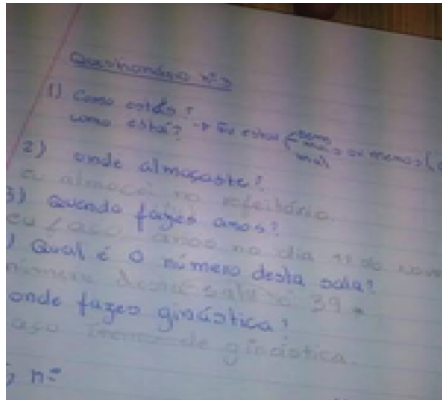 Questionário nº3
1) Como estás? → Eu estou (bem, mais ou menos,
como está? mal,
2) onde almoçaste?
eu almocei no refeitório
3) Quando fazes anos?
eu faço anos no dia 11 de
) Qual é o número desta sala?
número desta sala é 39.
onde fazes ginástica?
aço de ginástica.
nº